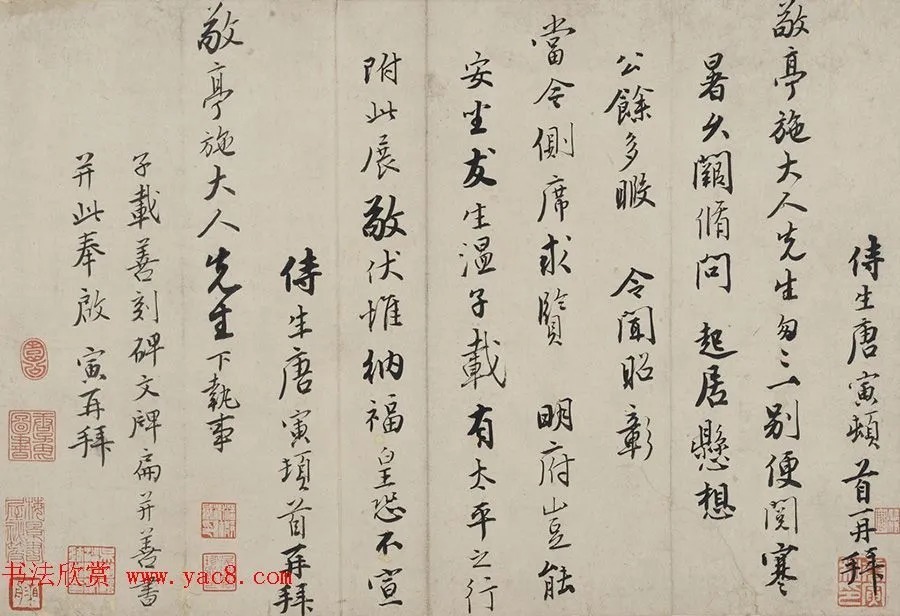 侍生唐寅頓首再拜
敬亭施大人先生匆匆一別便閱寒
暑久闊脩問 起居懸想
公餘多暇 令聞昭彰
當今側席求賢 明府豈能
安坐友生溫子載有太平之行
附此展敬伏惟納福皇恐不宣
侍生唐寅頓首再拜
敬亭施大人先生下執事
子載善刻碑文牌扁并善書
并此奉啟 寅再拜
书法欣赏 www.yac8.com